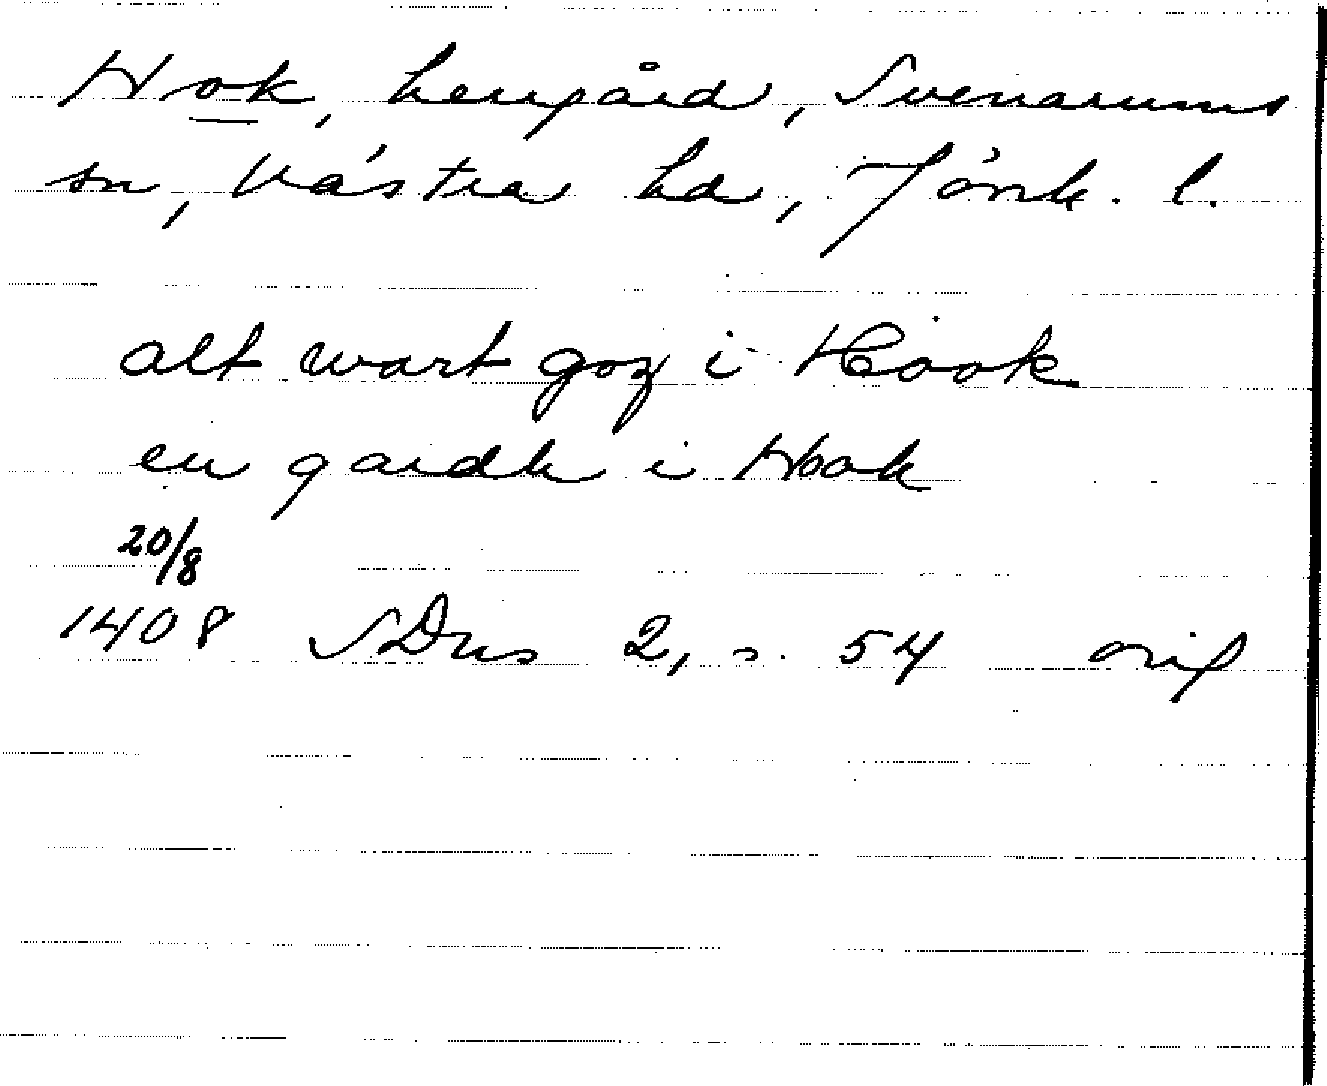 Hok, herrgård, Svenarums
sn, Västra hd, Jönk. l.
alt wart goz i Hook
en gardh i Hook
20/8
1408 SDns 2, s. 54 orig